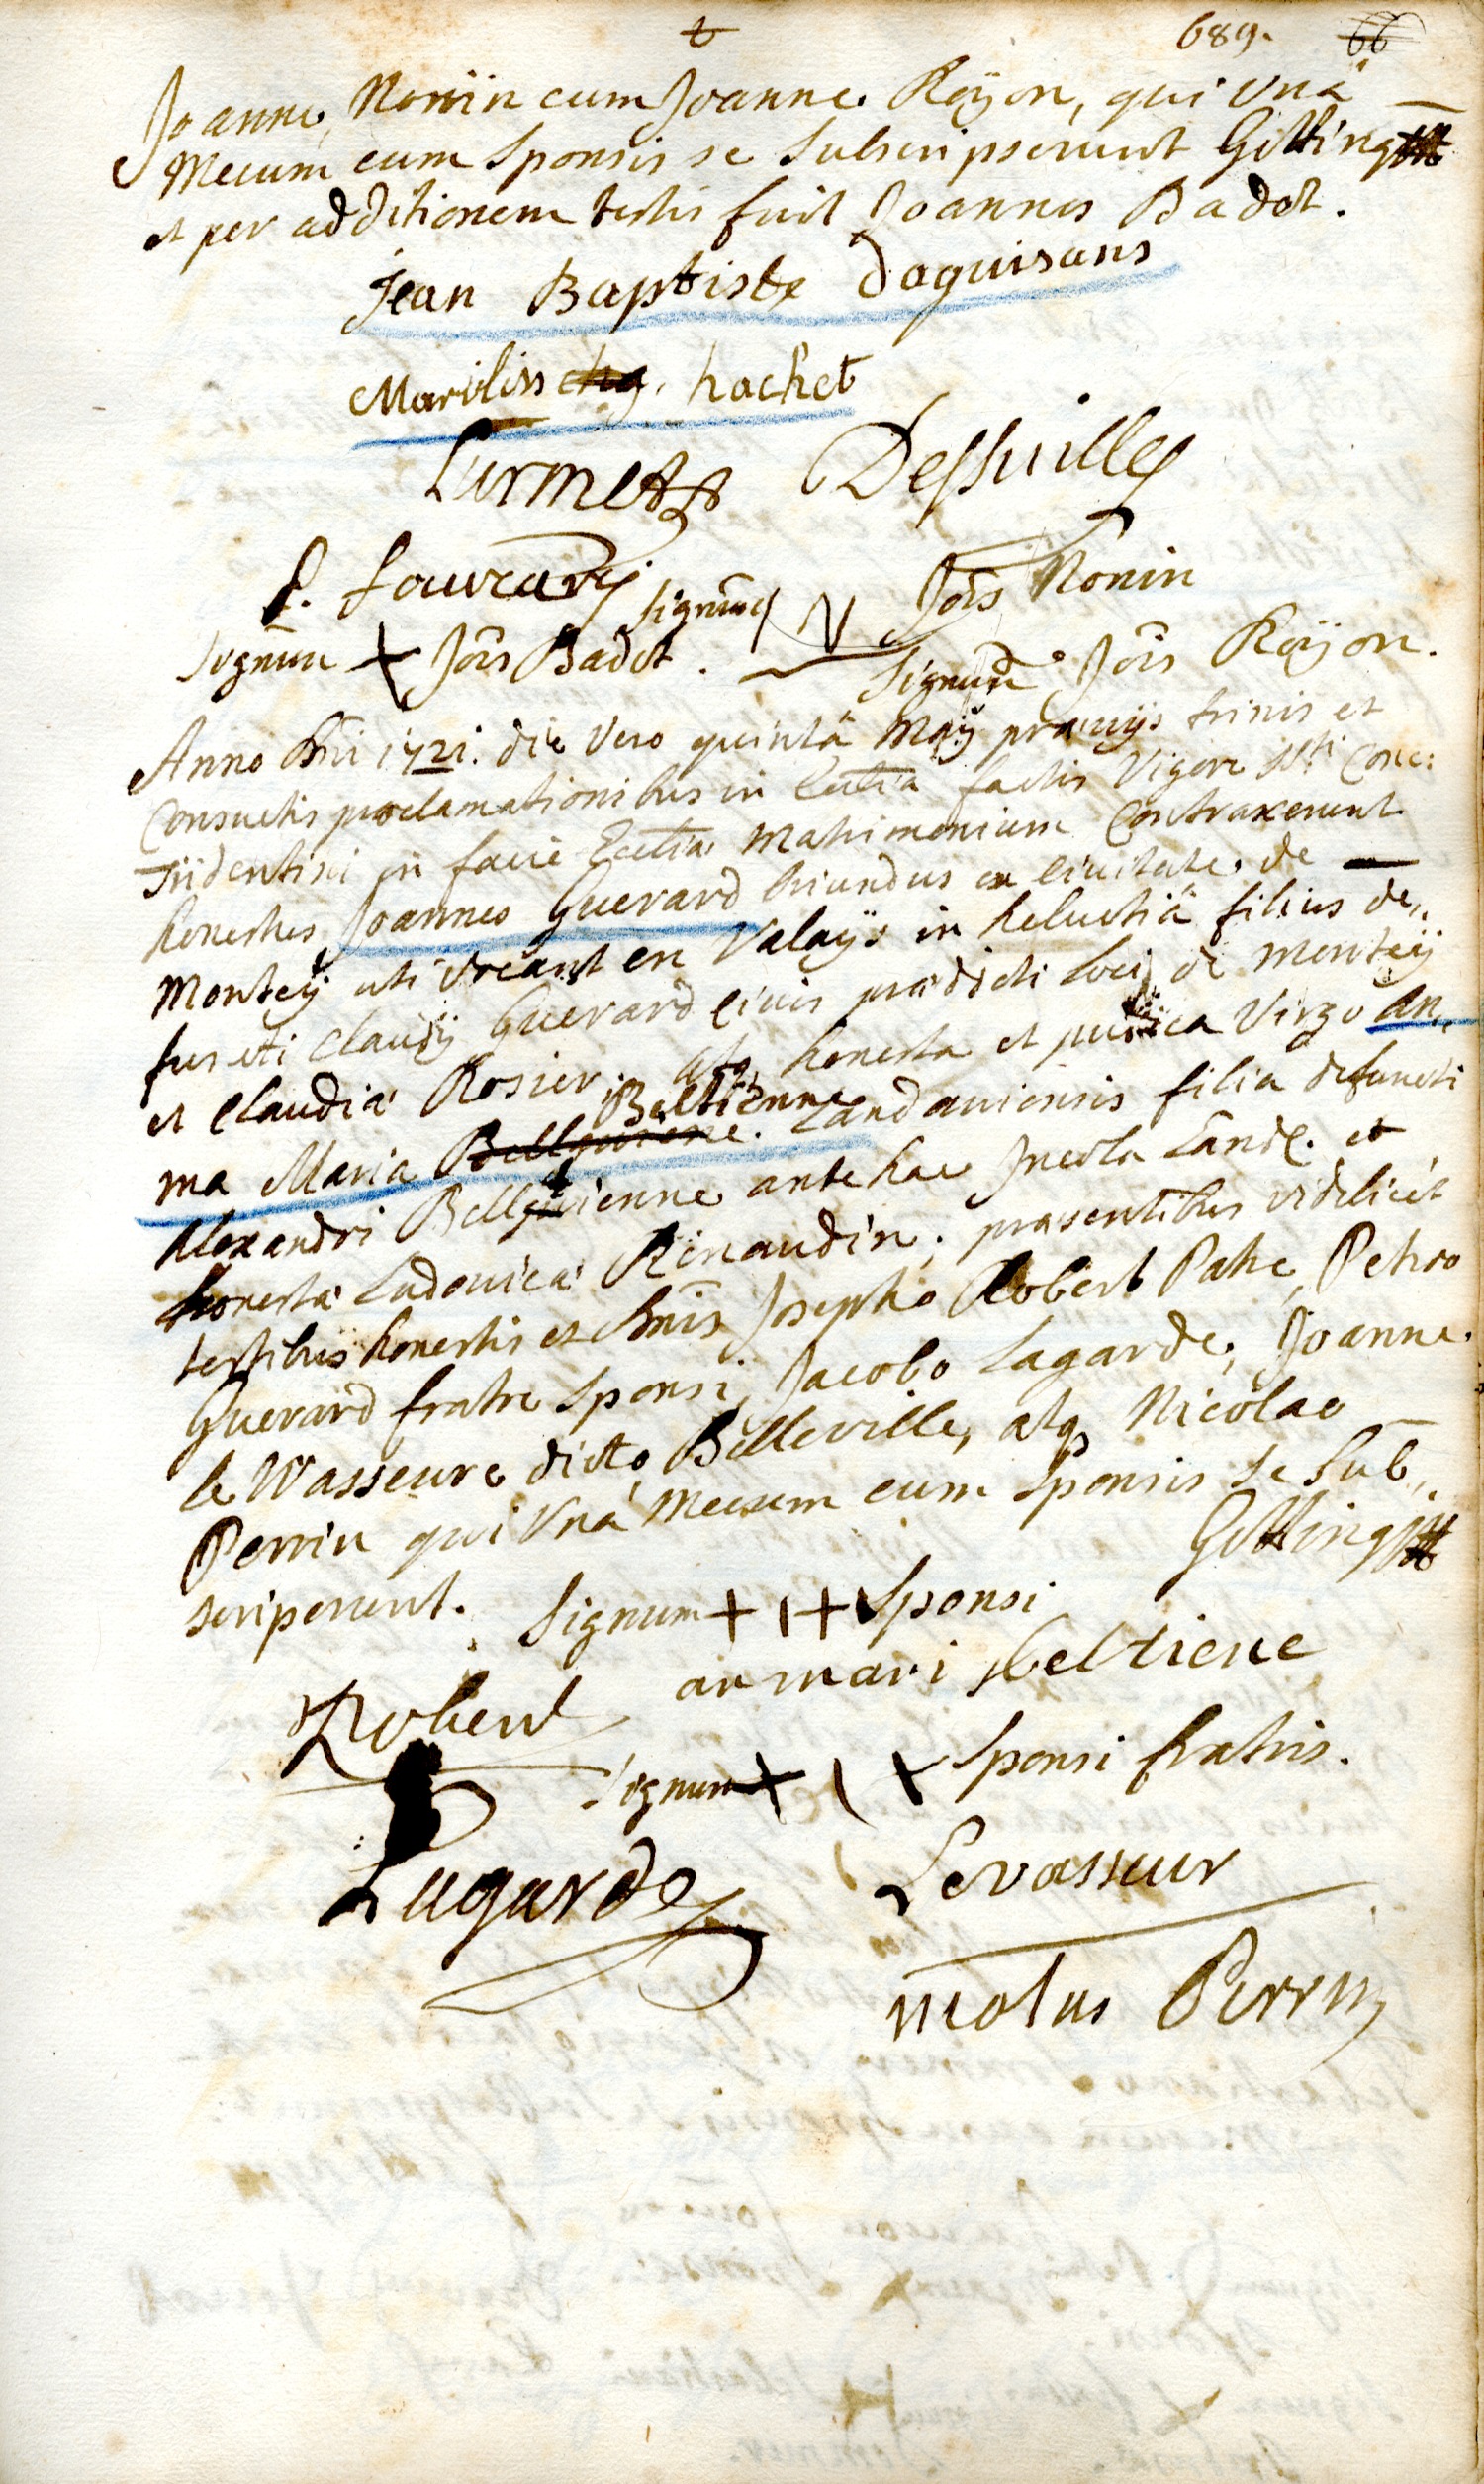 689. 66
Joanne Nonin cum Joanne Roÿon, qui Unâ
Mecum cum Sponsis se Subscripserunt Gilling
et per additionem testis fuit Joannes Badot.
jean Baptiste daguisans
hachet
Dessuilles
Signum Jois Nonin
Signum + Jois Badot.
Signum Jois Roÿon.
Anno Dni 1721. die Vero quintâ Maÿ prævijs trinis et
Consuetis proclamationibus in Ecclia factis Vigore Ssti Conc:
Tridentini in facie Eccliæ Matrimonium Contraxerunt
honestus Joannes Guerard oriundus ex civitate de
Monteÿ uti vocant en Valaÿs in helvetiâ filius de,,
functi Claudÿ Guerard civis prædicti Loci de Monteÿ
et Claudiæ Rosier. atq honesta et pudica Virgo An,,
Beltienne
ma Maria Landaviensis filia defuncti
Alexandri Beltienne antehac Incola Land. et
honesta Ludovica Renaudin; præsentibus videlicet
testibus honestis et Dnis Josepho Robert Patre, Petro
Guerard fratre Sponsi, Jacobo Lagarde, Joanne
le Wasseure dicto Belleville, atq Nicolao
Perrin qui Unâ Mecum cum Sponsis se Sub,,
scriperunt. Gilling
Signum + 1 + Sponsi
an mari beltiene
Robert
Signum + 1 + Sponsi fratris.
Lagarde
Levasseur
nicolas Perrin